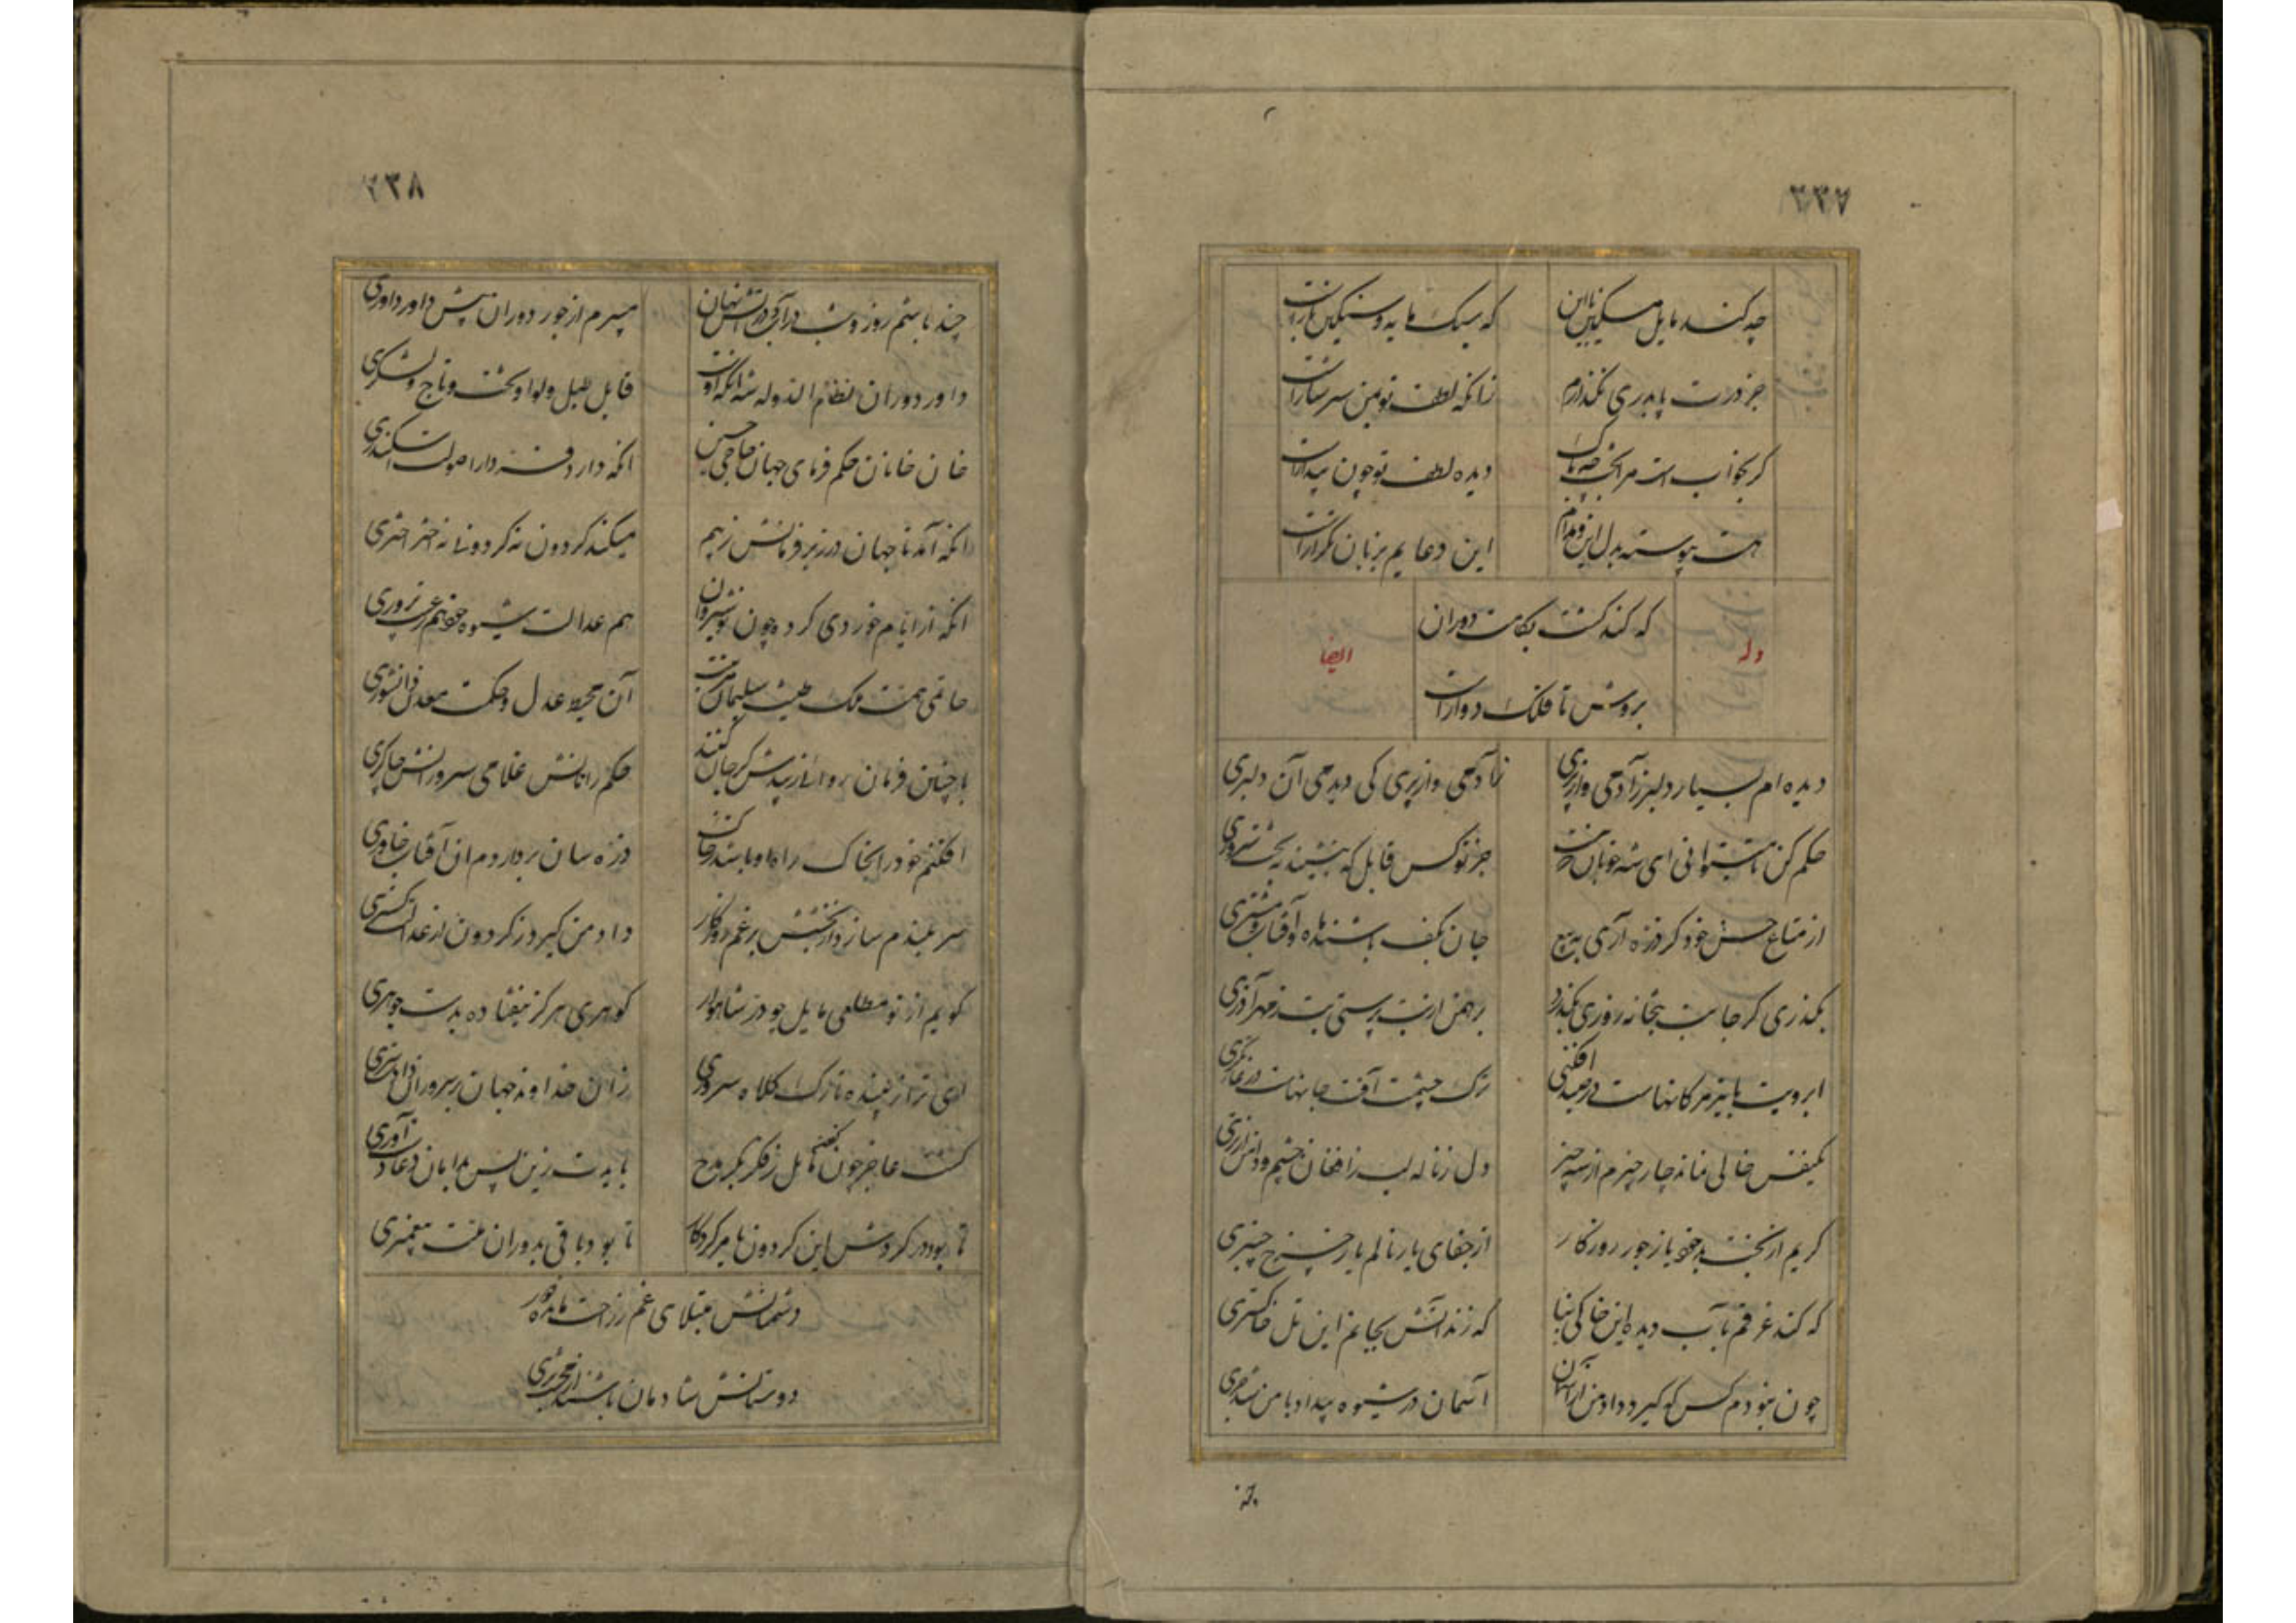 ۲۳۷
چه کند مایل مسکین با این
که سبک مایه و سنگین بارست
جز درت پا بدری نگذارم
زانکه لطف تو بمن سرشارست
گر بخوابست مرا بخت چه باک
دیده لطف تو چون بیدارست
هست پیوسته بدل این و مدام
این دعایم بزبان تکرارست
وله
ایضا
که کند گشت بکامت دوران
بروش تا فلک دوارست
دیده ام بسیار دلبر ز آدمی و از پری
ز آدمی و از پری کی دیدمی آن دلبری
حکم کن تا میتوانی ای شه خوبان
جز تو کس قابل که بنشیند به تخت سروری
از متاع حسن خود گر ذره آری به بیع
جان بکف باشند ماه و آفتاب و مشتری
بگذری گر جانب بتخانه روزی بگذرد
برهمن از بت پرستی بت ز مهر آذری
ابرویت با تیر مژگانهاست در صید افکنی
ترک چشمت آفت جانهاست در غارتگری
یکنفس خالی نماند چار چیزم از سه چیز
دل ز ناله لب ز افغان چشم و دامن از تری
گریم از بخت بد خود یا ز جور روزگار
از جفای یار نالم یا ز چرخ چنبری
که کند غرقم بآب دیده این خاکی بنا
که زند آتش بجانم این تل خاکستری
چون نبودم کس که گیرد داد من از آسمان
آسمان در شیوه بیداد با من شد جری
چند
۲۳۸
چند باشم روز و شب در آب و در آتش نهان
میبرم از جور دوران پیش داور داوری
داور دوران نظام الدوله شه آنکه اوست
قابل طبل و لوا و تخت و تاج و لشکری
خان خانان حکم فرمای جهان حاجی حسین
آنکه دارد فر دارا صولت اسکندری
آنکه آمد تا جهان در زیر فرمانش ز بیم
میکند گردون نه گردونی نه اختر اختری
آنکه از ایام خوردی کرده چون نوشیروان
هم عدالت شیوه خود هم رعیت پروری
حاتمی همت ملک طینت سلیمان مرتبت
آن محیط عدل و حکمت معدن دانشوری
با چنین فرمان روائی زیبدش گر جان کنند
حکم رانانش غلامی سرورانش چاکری
افکنم خود را بخاک راه او باشد ز خاک
ذره سان برداردم آن آفتاب خاوری
سر بلندم سازد از بخشش بر غم روزگار
داد من گیرد ز گردون از عدالت گستری
گویم از نو مطلعی مایل چو در شاهوار
گوهری هرگز نیفتاده بدست جوهری
ای ترا زیبنده تارک کلاه سروری
زان خداوند جهان بر سروران دادت سری
گشت عاجز چون مایل ز فکر بکر مدح
بایدت زین پس بپایان دعا رو آوری
تا بود در گردش این گردون بامر کردگار
تا بود باقی بدوران ملت پیغمبری
دشمنانش مبتلای غم ز راحت مانده دور
دوستانش شادمان باشند از خدمتگری